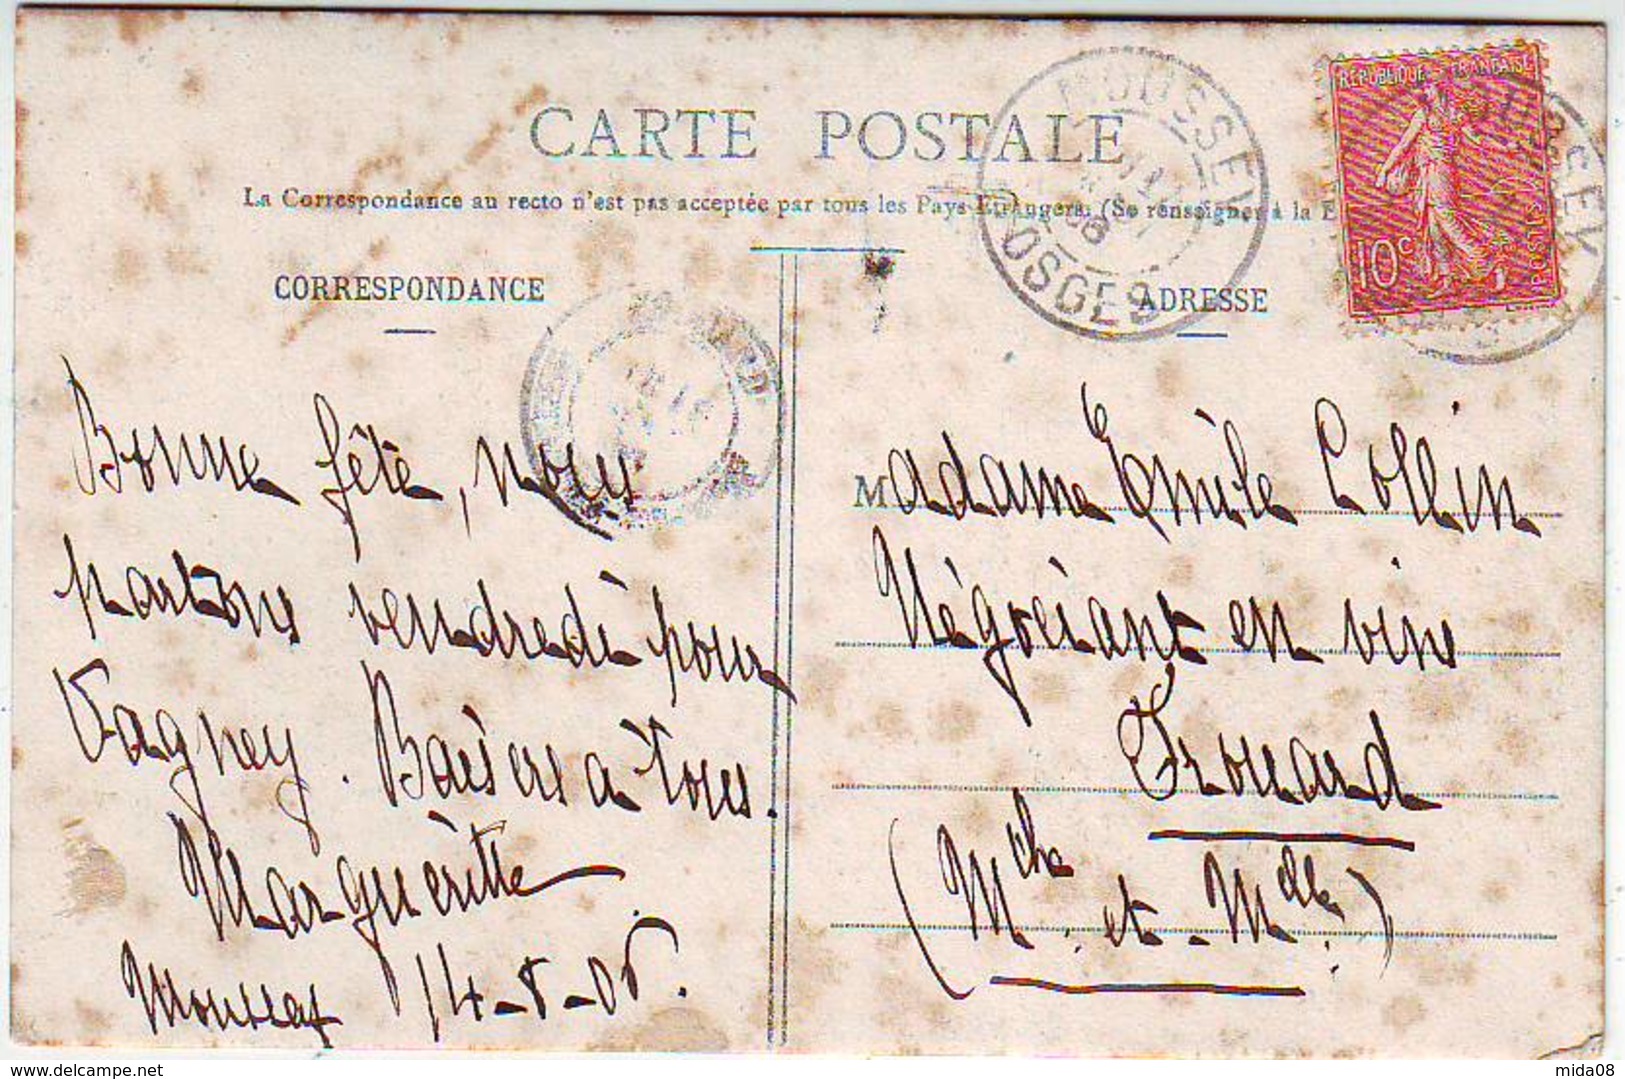 CARTE POSTALE
La Correspondance au recto n'est pas acceptée par tous les Pays Etrangers. (Se renseigner à la
CORRESPONDANCE
ADRESSE
MOUSSEY
VOSGES
REPUBLIQUE FRANÇAISE
10c
POSTES
Bonne fête, nous
partons vendredi pour
Vagney. Baisers à tous.
Margueritte
Moussey 14-8-06.
Madame Emile Collin
Négociant en vins
Frouard
(Mthe et Mlle)
mida08